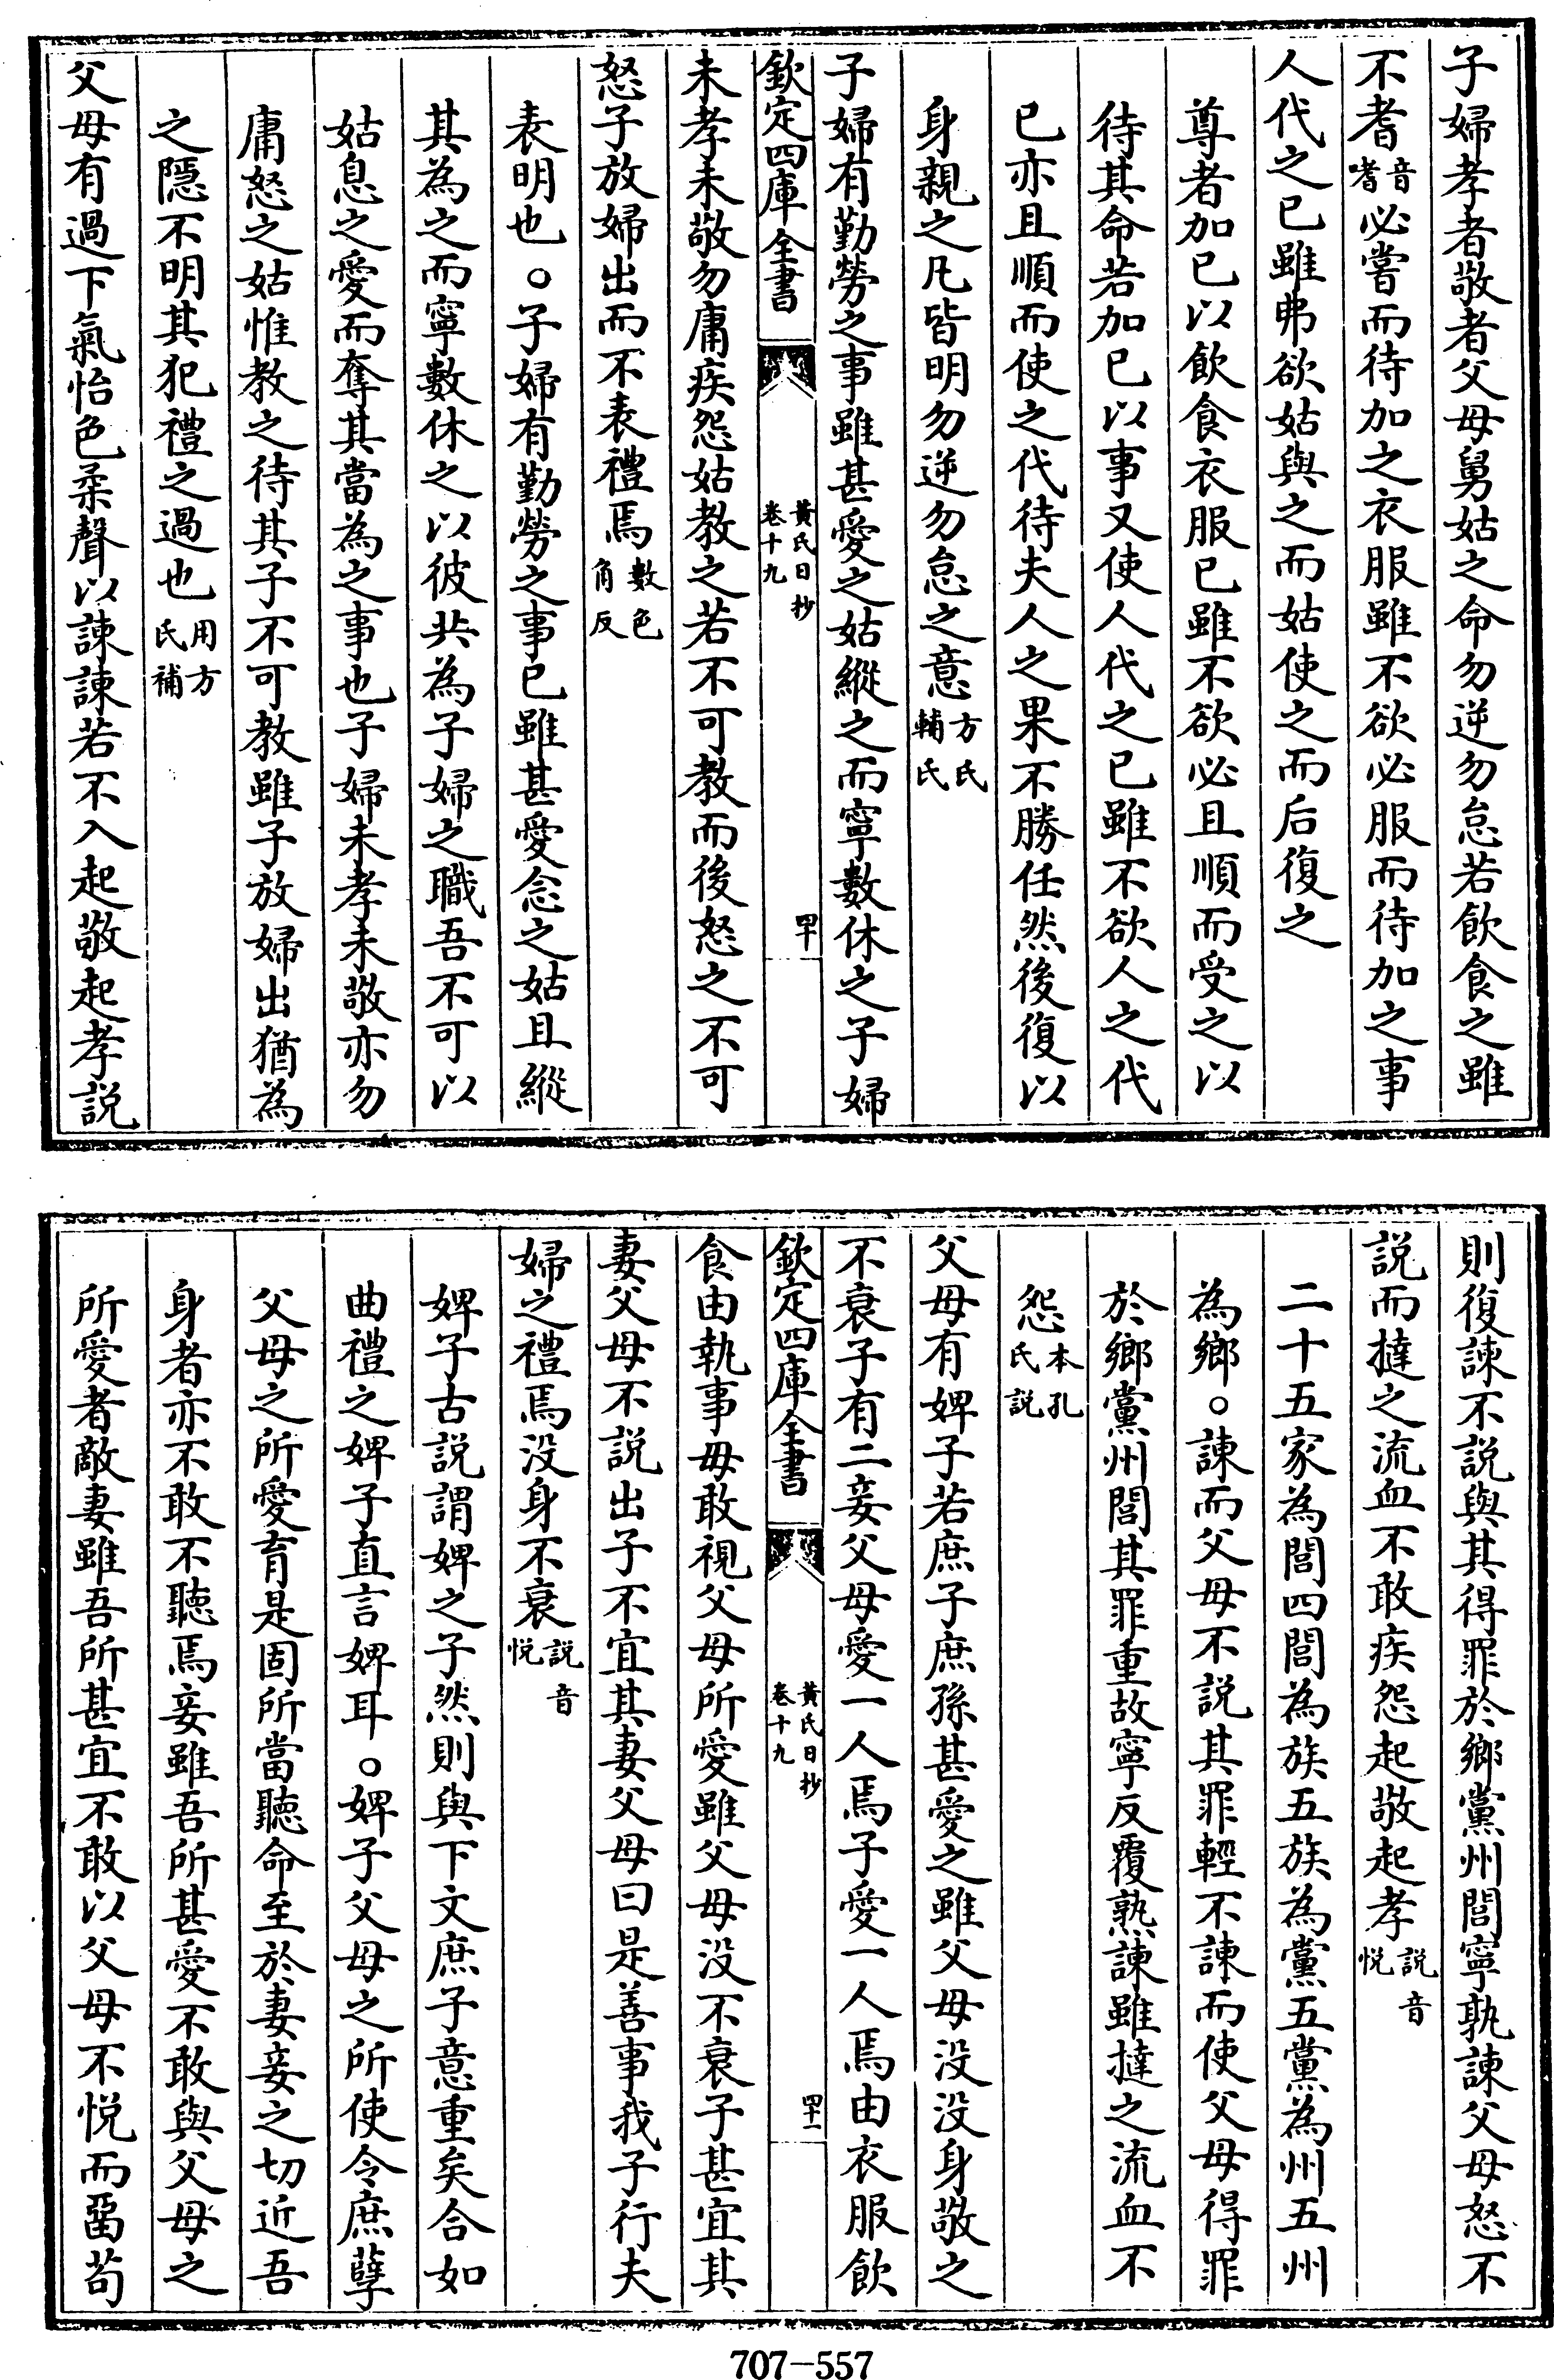 子婦孝者敬者父母舅姑之命勿逆勿怠若飲食之雖
不耆音嗜必嘗而待加之衣服雖不欲必服而待加之事
人代之已雖弗欲姑與之而姑使之而后復之
尊者加已以飲食衣服已雖不欲必且順而受之以
待其命若加已以事又使人代之已雖不欲人之代
已亦且順而使之代待夫人之果不勝任然後復以
身親之凡皆明勿逆勿怠之意方氏輔氏
子婦有勤勞之事雖甚愛之姑縱之而寧數休之子婦
欽定四庫全書 黃氏日抄卷十九 四十
未孝未敬勿庸疾怨姑教之若不可教而後怒之不可
怒子放婦出而不表禮焉數色角反
表明也○子婦有勤勞之事已雖甚愛念之姑且縱
其為之而寧數休之以彼共為子婦之職吾不可以
姑息之愛而奪其當為之事也子婦未孝未敬亦勿
庸怒之姑惟教之待其子不可教雖子放婦出猶為
之隱不明其犯禮之過也用方氏補
父母有過下氣怡色柔聲以諫諫若不入起敬起孝說
則復諫不說與其得罪於鄉黨州閭寧孰諫父母怒不
說而撻之流血不敢疾怨起敬起孝說音悅
二十五家為閭四閭為族五族為黨五黨為州五州
為鄉○諫而父母不說其罪輕不諫而使父母得罪
於鄉黨州閭其罪重故寧反覆熟諫雖撻之流血不
怨本孔氏說
父母有婢子若庶子庶孫甚愛之雖父母没没身敬之
不衰子有二妾父母愛一人焉子愛一人焉由衣服飲
欽定四庫全書 黃氏日抄卷十九 四十一
食由執事毋敢視父母所愛雖父母没不衰子甚宜其
妻父母不說出子不宜其妻父母曰是善事我子行夫
婦之禮焉没身不衰說音悅
婢子古說謂婢之子然則與下文庶子意重矣合如
曲禮之婢子直言婢耳○婢子父母之所使令庶孽
父母之所愛育是固所當聽命至於妻妾之切近吾
身者亦不敢不聽焉妾雖吾所甚愛不敢與父母之
所愛者敵妻雖吾所甚宜不敢以父母不悅而畱苟
707-557